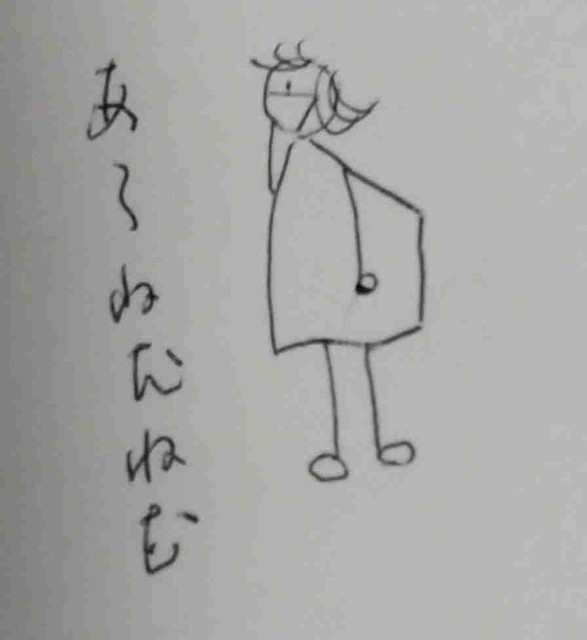 あ〜ねむねむ